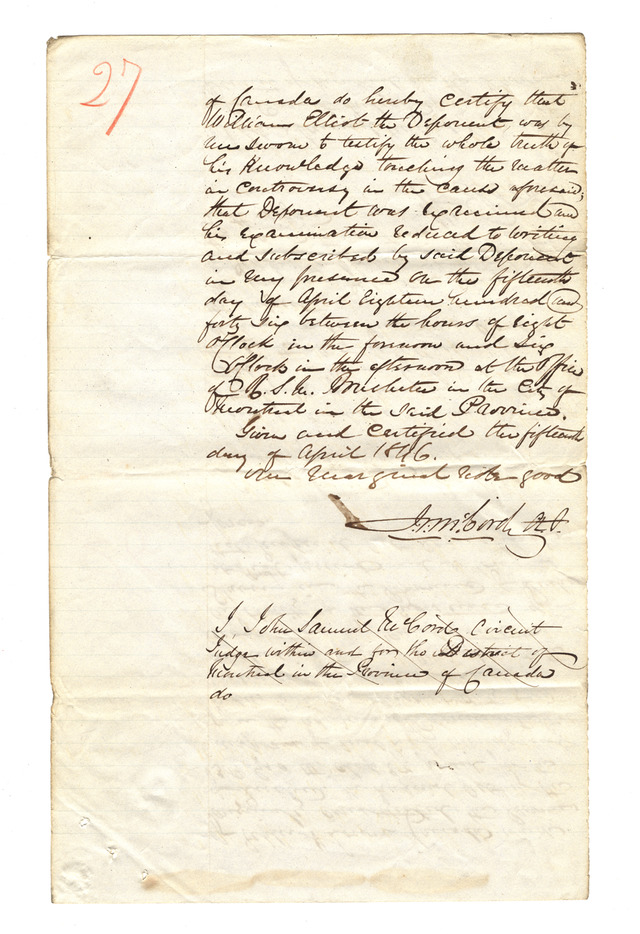 27
of Canada do hereby certify that
William Elliot the Deponent, was by
me sworn to testify the whole truth of
his Knowledge touching the matter
in controversy in the cause aforesaid;
that Deponent was examined and
his examination reduced to writing
and subscribed by said Deponent
in my presence on the fifteenth
day of April Eighteen hundred and
forty six between the hours of eight
O'Clock in the forenoon and six
O'Clock in the afternoon at the Office
of R. S. M. in the City of
Montreal in the said Province.
Given and certified the fifteenth
day of April 1846.
One Marginal Note good
J. S. McCord
I, John Samuel McCord, Circuit
Judge within and for the District of
Montreal in the Province of Canada
do